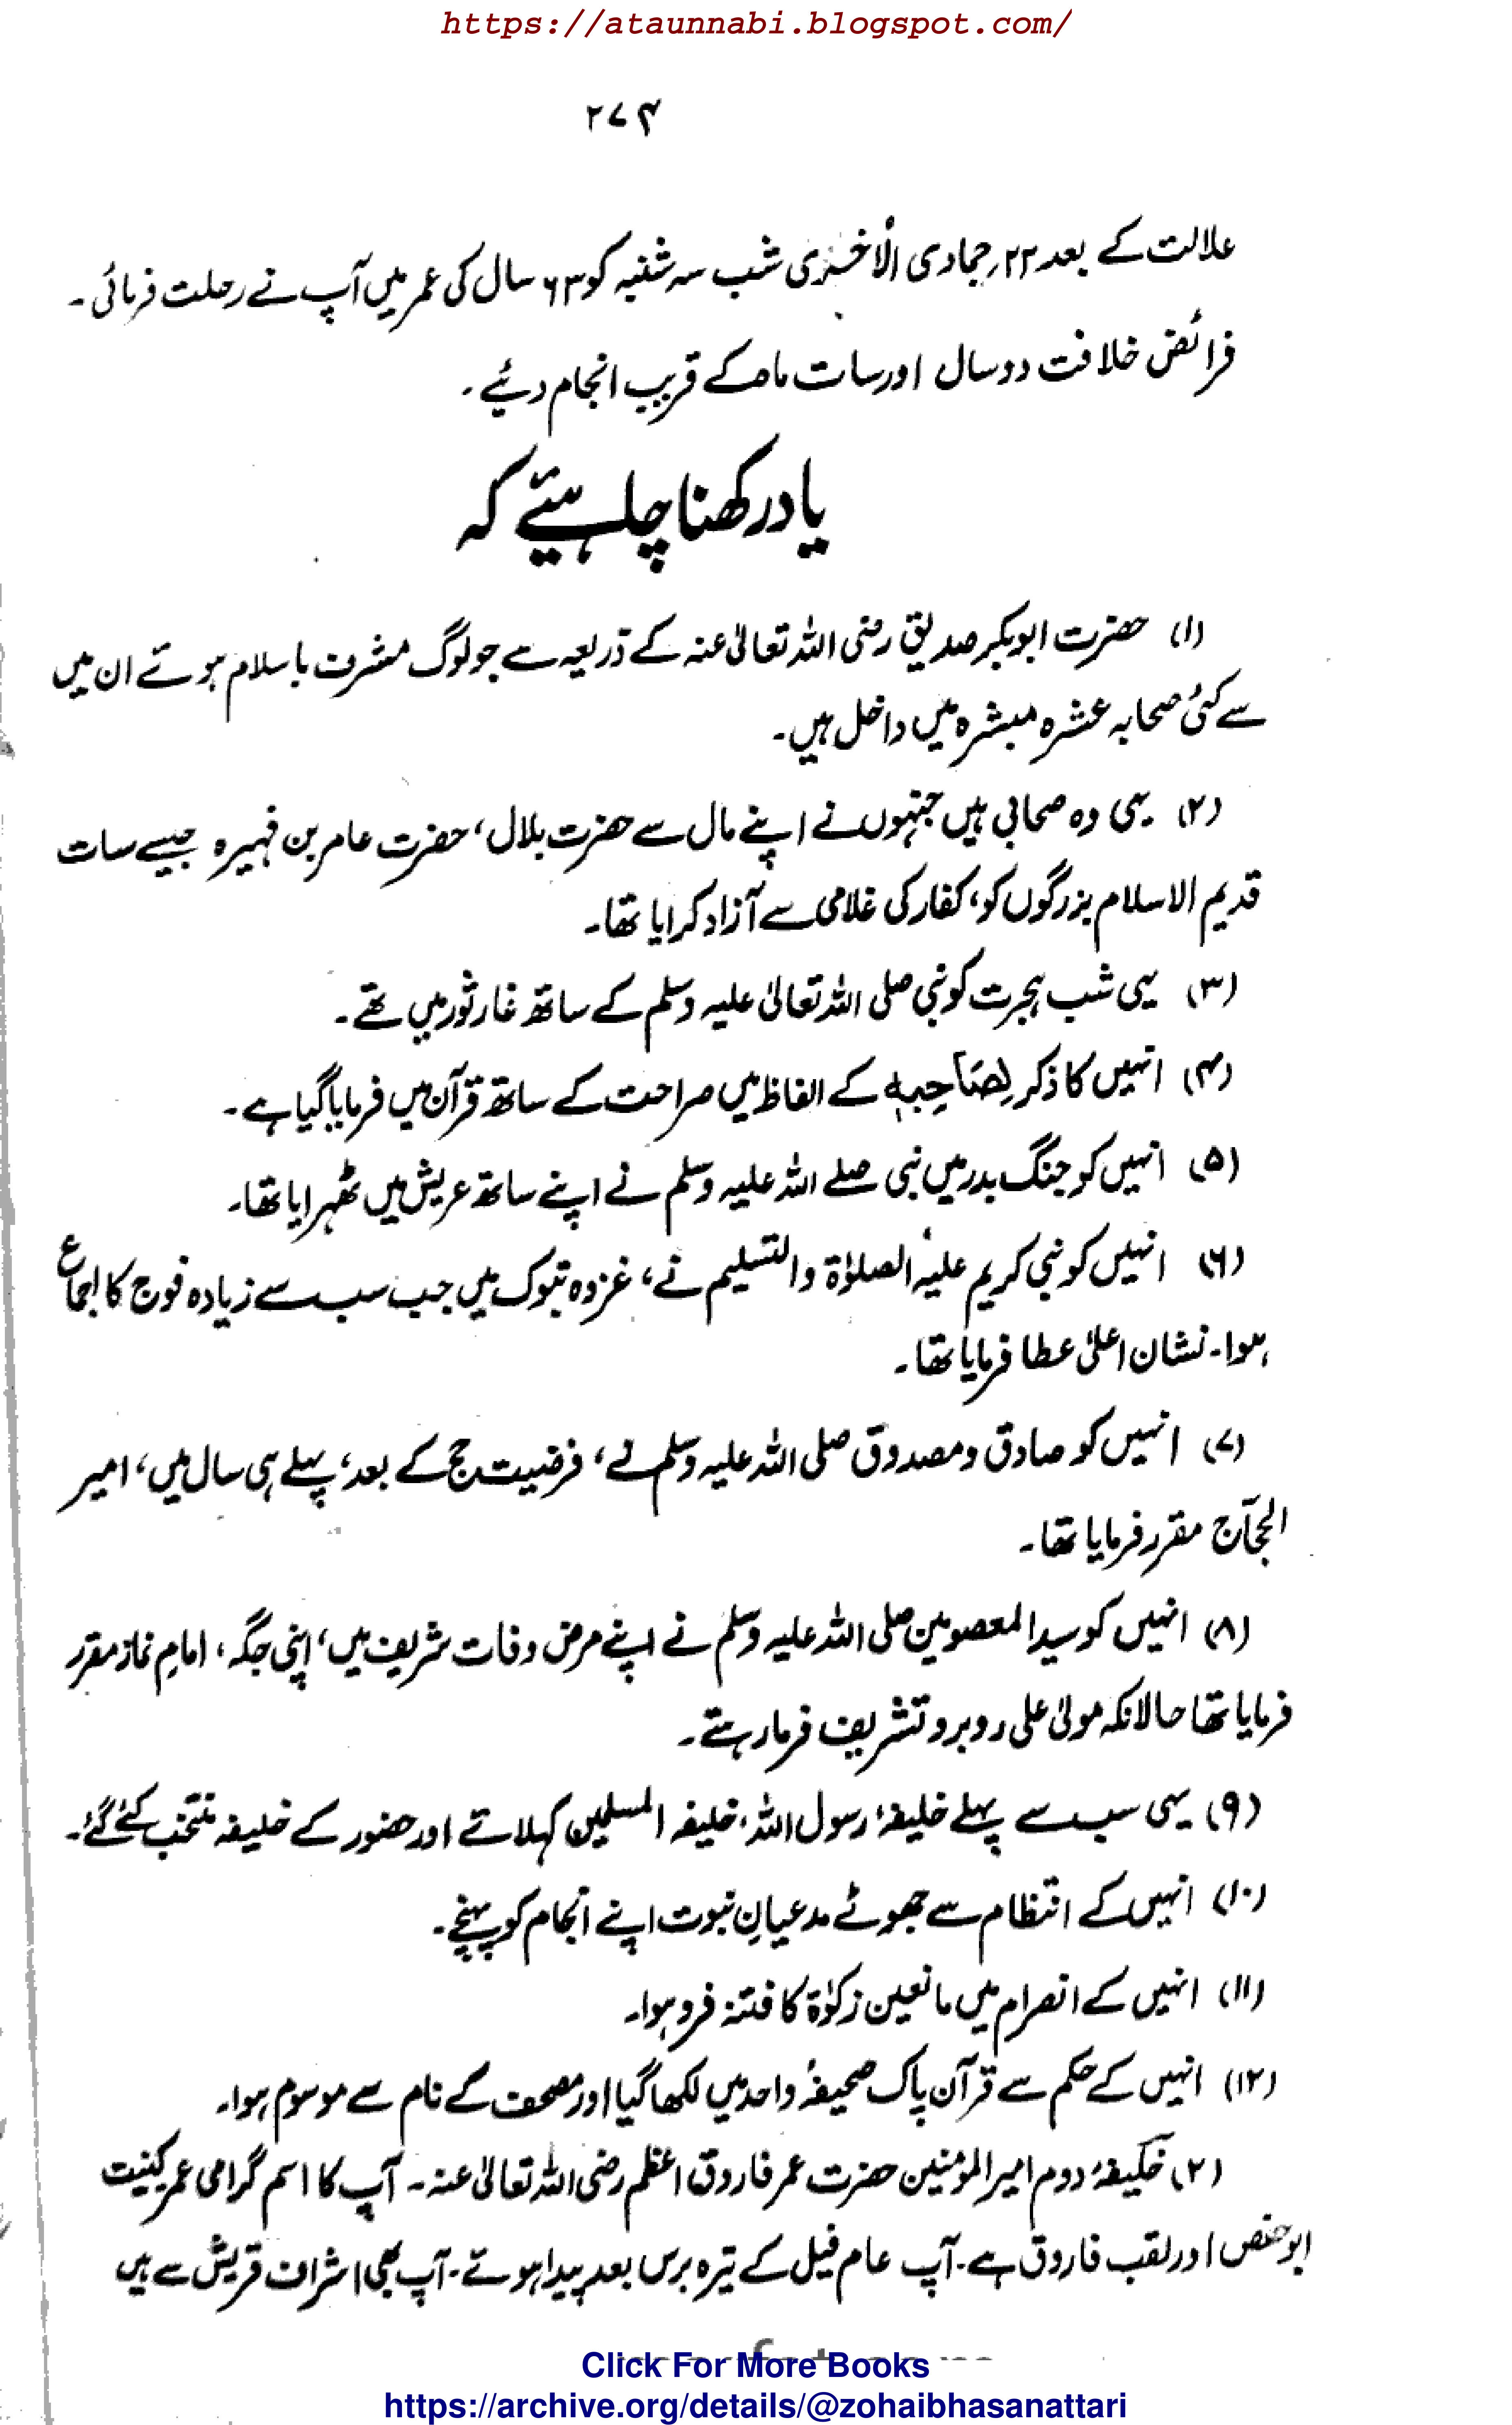 https://ataunnabi.blogspot.com/
۲۷۴
علالت کے بعد ۲۲؍جمادی الاُخریٰ شب سہ شنبہ کو ۶۳ سال کی عمر میں آپ نے رحلت فرمائی۔
فرائض خلافت دو سال اور سات ماہ کے قریب انجام دئیے۔
یاد رکھنا چاہیئے کہ
(۱) حضرت ابوبکر صدیق رضی اللہ تعالیٰ عنہ کے ذریعہ سے جو لوگ مشرف باسلام ہوئے ان میں
سے کئی صحابہ عشرہ مبشرہ میں داخل ہیں۔
(۲) یہی وہ صحابی ہیں جنہوں نے اپنے مال سے حضرت بلال، حضرت عامر بن فہیرہ جیسے سات
قدیم الاسلام بزرگوں کو، کفار کی غلامی سے آزاد کرایا تھا۔
(۳) یہی شب ہجرت کو نبی صلی اللہ تعالیٰ علیہ وسلم کے ساتھ غار ثور میں تھے۔
(۴) انہیں کا ذکر لِصَاحِبِهٖ کے الفاظ میں صراحت کے ساتھ قرآن میں فرمایا گیا ہے۔
(۵) انہیں کو جنگ بدر میں نبی صلے اللہ علیہ وسلم نے اپنے ساتھ عریش میں ٹھہرایا تھا۔
(۶) انہیں کو نبی کریم علیہ الصلوٰۃ والتسلیم نے، غزوہ تبوک میں جب سب سے زیادہ فوج کا اجماع
ہوا۔ نشان اعلیٰ عطا فرمایا تھا۔
(۷) انہیں کو صادق و مصدوق صلی اللہ علیہ وسلم نے، فرضیت حج کے بعد، پہلے ہی سال میں، امیر
الحجآج مقرر فرمایا تھا۔
(۸) انہیں کو سید المعصومین صلی اللہ علیہ وسلم نے اپنے مرض وفات شریف میں، اپنی جگہ، امامِ نماز مقرر
فرمایا تھا حالانکہ مولیٰ علی روبرو تشریف فرما رہتے۔
(۹) یہی سب سے پہلے خلیفۂ رسول اللہ، خلیفہ المسلمین کہلائے اور حضور کے خلیفہ منتخب کئے گئے۔
(۱۰) انہیں کے انتظام سے جھوٹے مدعیانِ نبوت اپنے انجام کو پہنچے۔
(۱۱) انہیں کے انصرام میں مانعین زکوٰۃ کا فتنہ فرو ہوا۔
(۱۲) انہیں کے حکم سے قرآن پاک صحیفۂ واحد میں لکھا گیا اور مصحف کے نام سے موسوم ہوا۔
(۲) خلیفۂ دوم امیر المؤمنین حضرت عمر فاروق اعظم رضی اللہ تعالیٰ عنہ۔ آپ کا اسم گرامی عمر کنیت
ابوحفص اور لقب فاروق ہے۔ آپ عام فیل کے تیرہ برس بعد پیدا ہوئے۔ آپ بھی اشراف قریش سے ہیں
Click For More Books
https://archive.org/details/@zohaibhasanattari